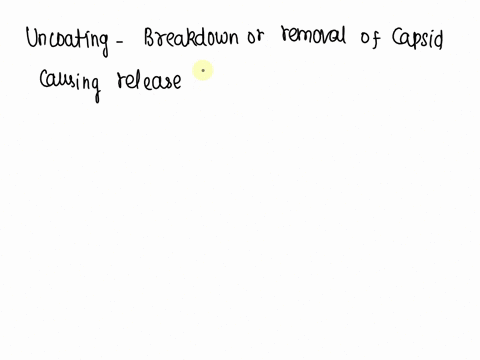 Uncoating - Breakdown or removal of Capsid
Causing release